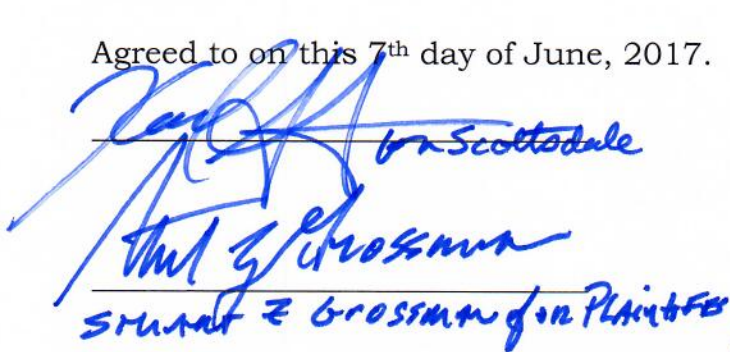 Agreed to on this 7th day of June, 2017.
for Scottsdale
Grossman
STUART Z GROSSMAN for PLAINTIFFS